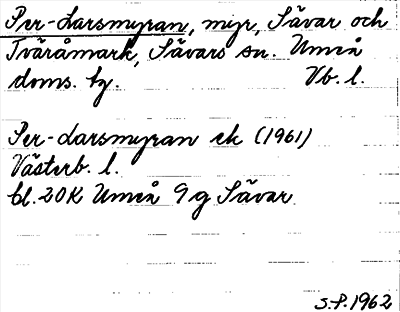 Per-Larsmyran, myr, Sävar och
Tväråmark, Sävars sn. Umeå
doms. hg. Vb. l.
Per-Larsmyran ek (1961)
Västerb. l.
bl. 20K Umeå 9g Sävar
S.P. 1962